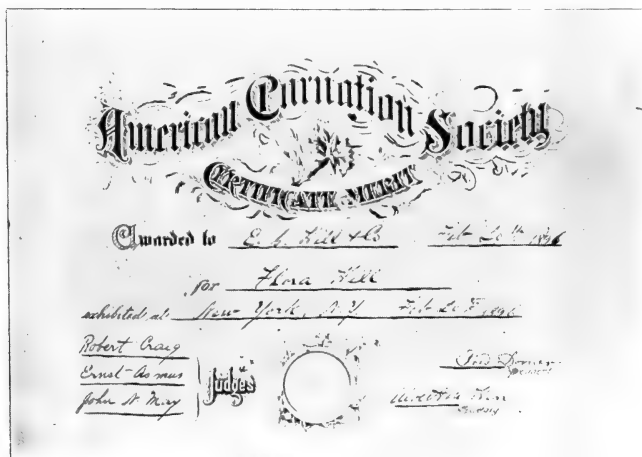 American Carnation Society
CERTIFICATE MERIT
Awarded to E. G. Hill & Co Feb 20th 1896
for Flora Hill
exhibited at New York, N.Y. Feb 20th 1896
Robert Craig
Ernst Asmus
John N. May
Judges
Fred Dorner